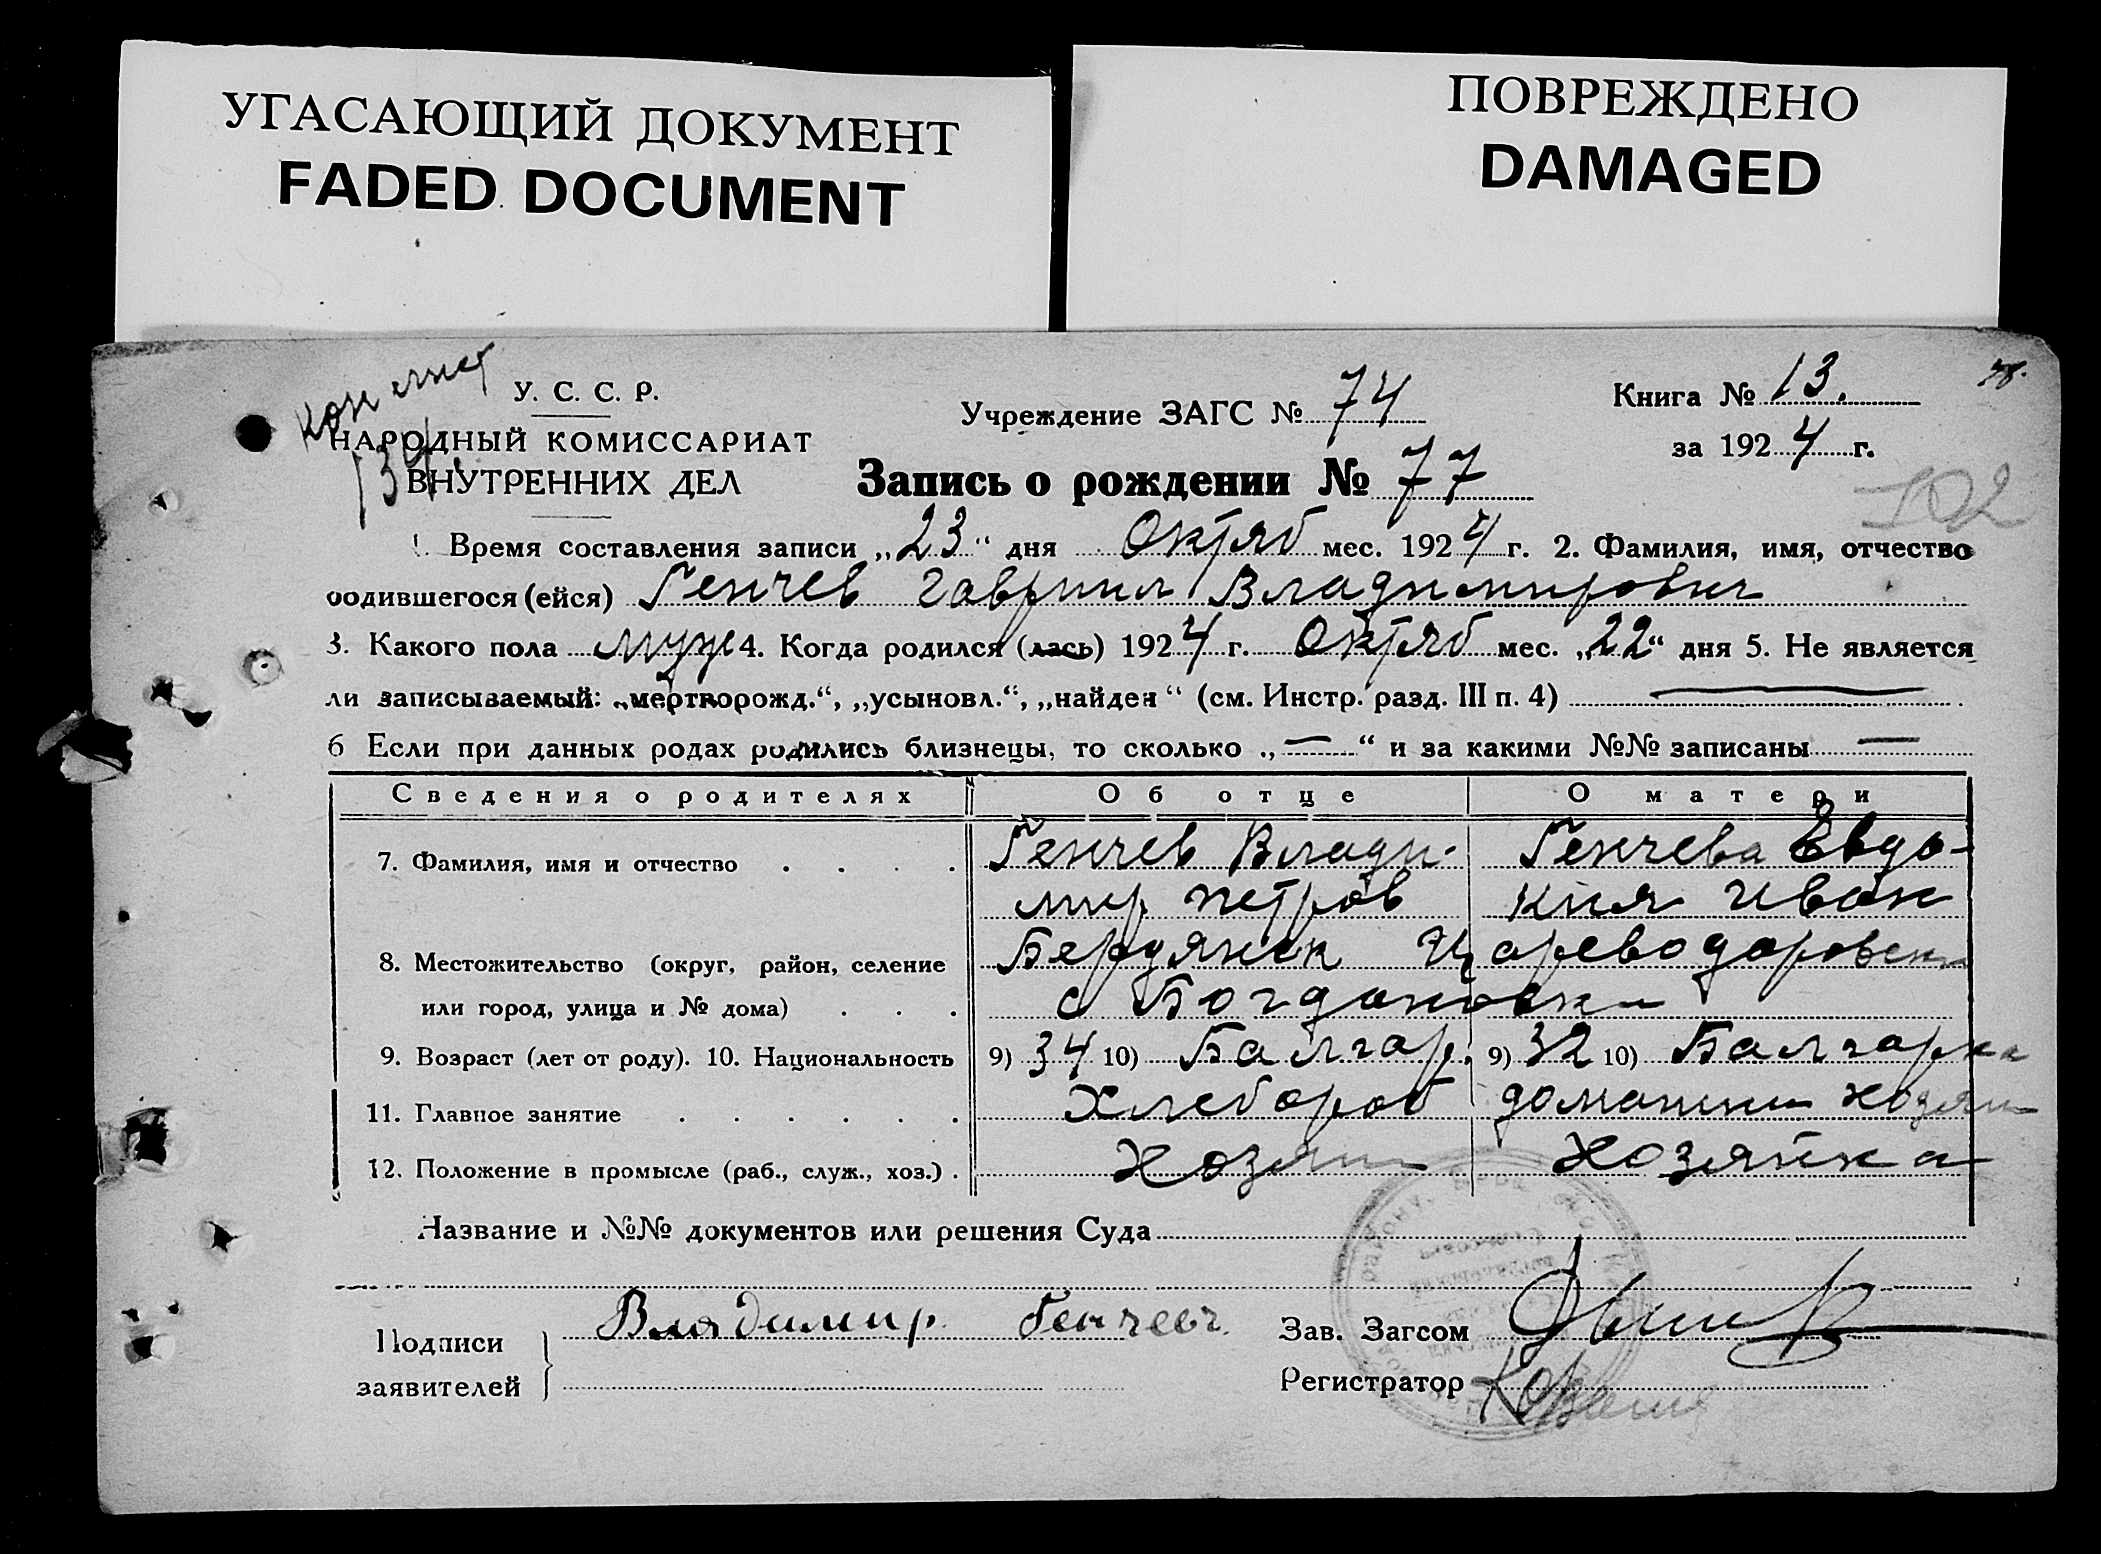 УГАСАЮЩИЙ ДОКУМЕНТ
FADED DOCUMENT
ПОВРЕЖДЕНО
DAMAGED
У. С. С. Р.
НАРОДНЫЙ КОМИССАРИАТ
ВНУТРЕННИХ ДЕЛ
134
Учреждение ЗАГС № 74
Книга № 13.
78.
за 1924 г.
Запись о рождении № 77
102
1. Время составления записи „23“ дня Октяб мес. 1924 г. 2. Фамилия, имя, отчество
родившегося (ейся) Генчев Гавриил Владимирович
3. Какого пола муж 4. Когда родился (лась) 1924 г. Октяб мес. „22“ дня 5. Не является
ли записываемый: „мертворожд.“, „усыновл.“, „найден“ (см. Инстр. разд. III п. 4) —
6 Если при данных родах родились близнецы, то сколько „—“ и за какими №№ записаны —
Сведения о родителях Об отце О матери
7. Фамилия, имя и отчество . . . . Генчев Влади- Генчева Евдо-
мир Петров кия Иван
8. Местожительство (округ, район, селение Бердянск Цареводаровск
или город, улица и № дома) . . . с Богдановка
9. Возраст (лет от роду). 10. Национальность 9) 34 10) Балгар. 9) 32 10) Балгарка
11. Главное занятие . . . . . . Хлебороб домашни хозяи
12. Положение в промысле (раб., служ., хоз.) . Хозяин Хозяйка
Название и №№ документов или решения Суда
Подписи
заявителей
Владимир Генчевъ
Зав. Загсом
Регистратор